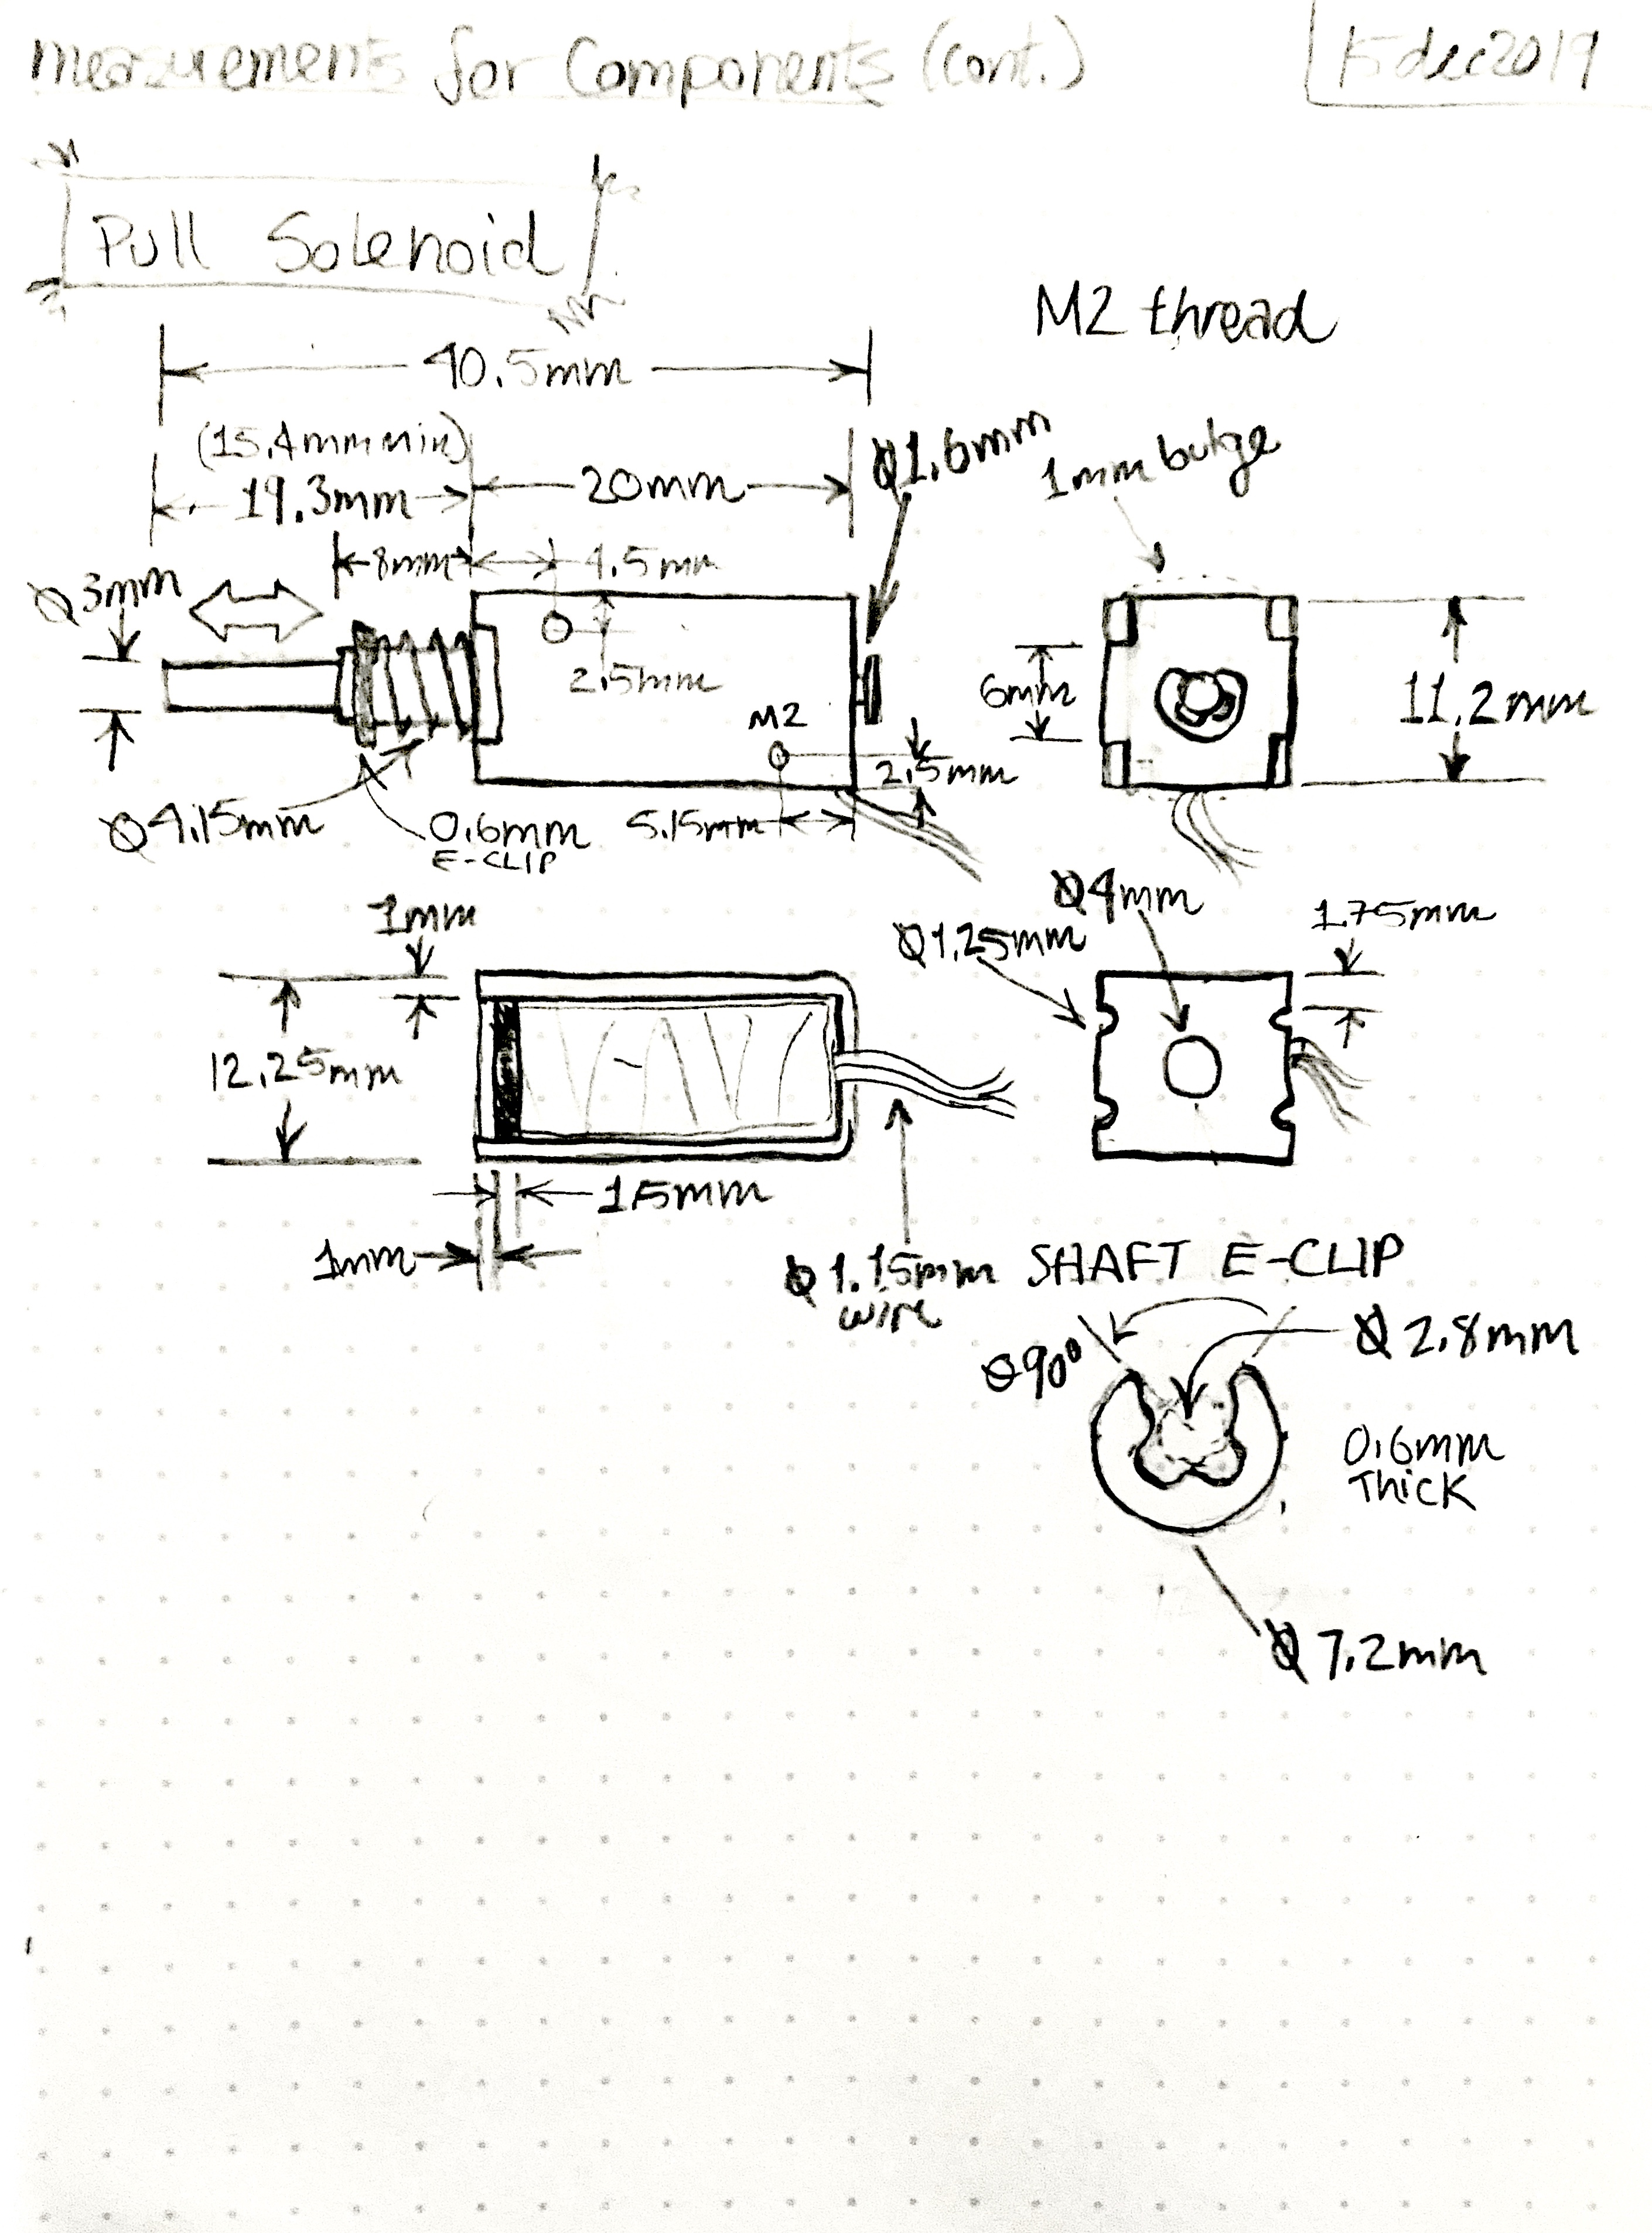 measurements for Components (cont.)
15dec2019
Pull Solenoid
M2 thread
40.5mm
(15.4mm min)
19.3mm
20mm
Ø1.6mm
1mm bulge
8mm
4.5mm
Ø3mm
2.5mm
M2
6mm
11.2mm
2.5mm
Ø4.15mm
0.6mm
E-CLIP
5.15mm
1mm
Ø4mm
Ø1.25mm
1.75mm
12.25mm
1.5mm
1mm
Ø1.15mm
wire
SHAFT E-CLIP
Ø90°
Ø2.8mm
0.6mm
Thick
Ø7.2mm